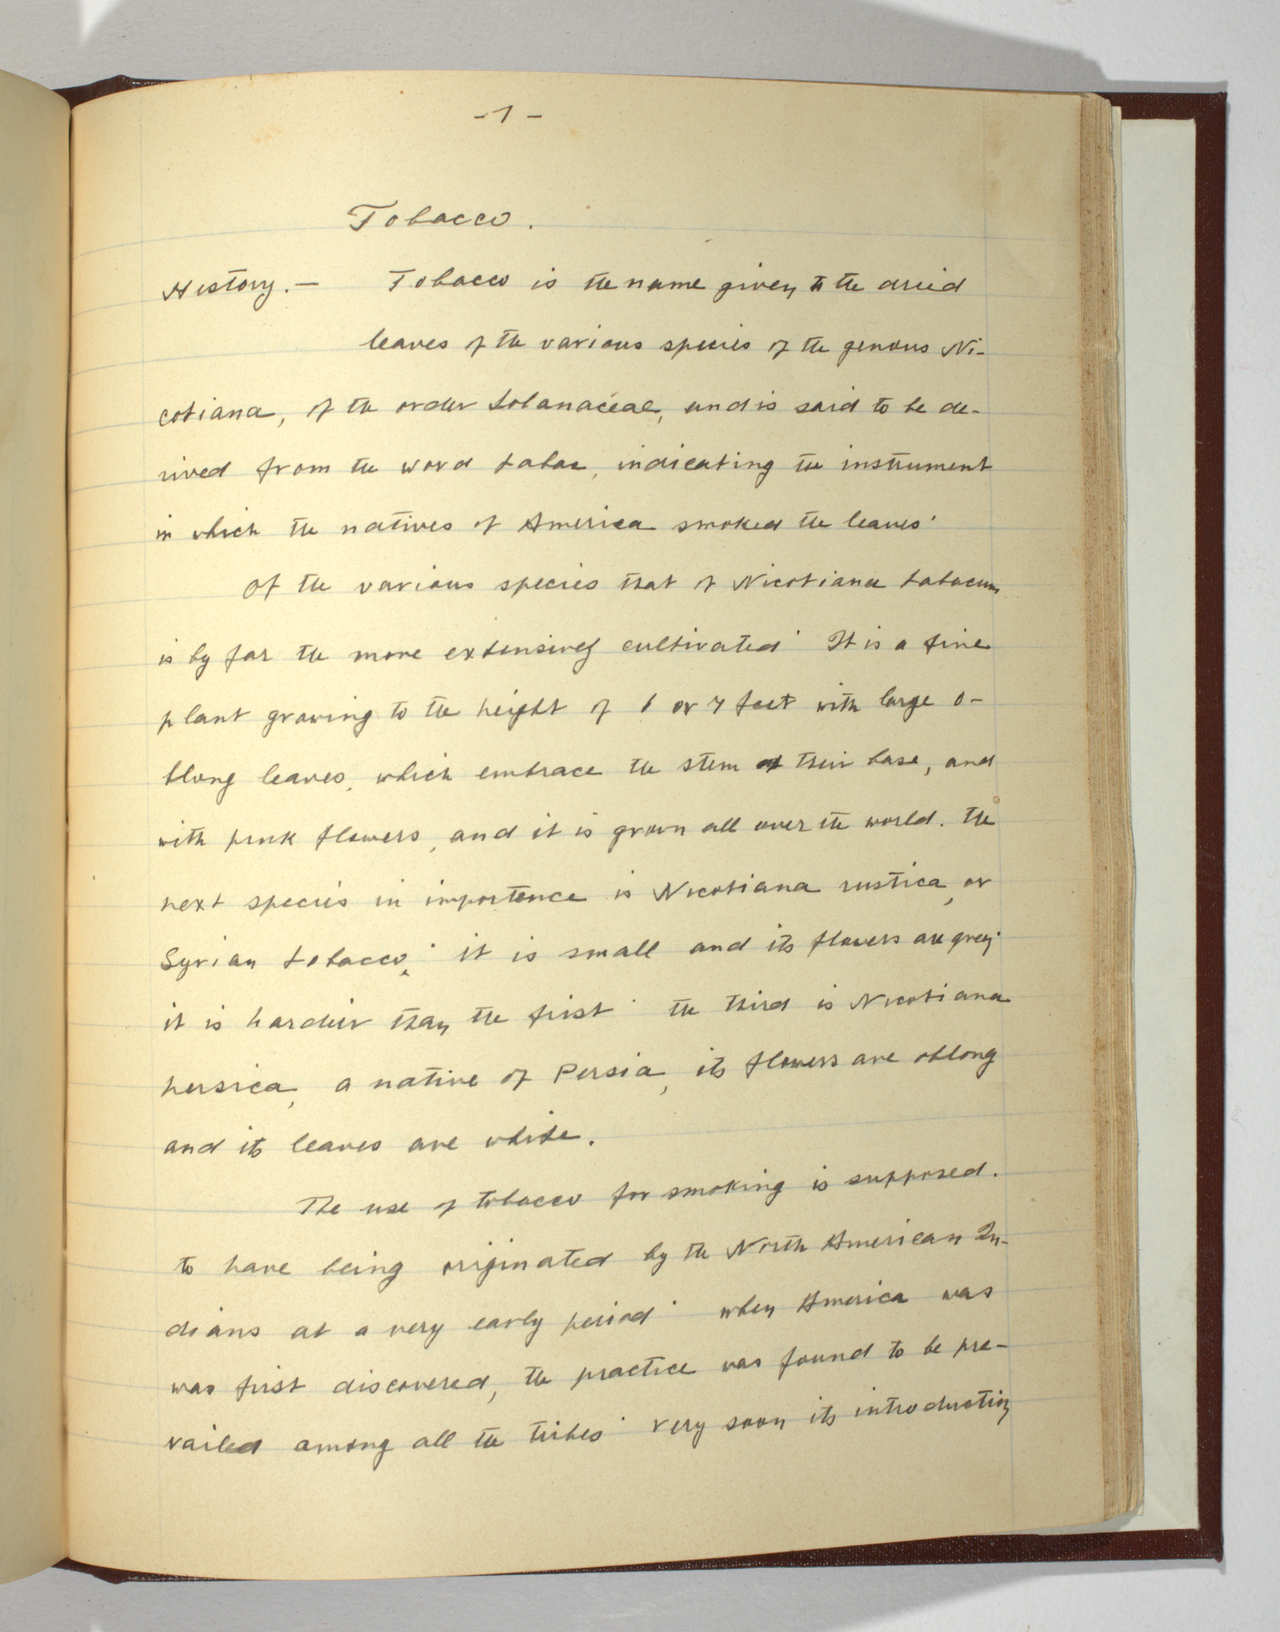 -1-
Tobacco.
History.— Tobacco is the name given to the dried
leaves of the various species of the genous Ni-
cotiana, of the order Solanaceae, and is said to be de-
rived from the word tabac, indicating the instrument
in which the natives of America smoked the leaves.
Of the various species that of Nicotiana tabacum
is by far the more extensively cultivated. It is a fine
plant growing to the height of 6 or 7 feet with large o-
blong leaves, which embrace the stem at their base, and
with pink flowers, and it is grown all over the world. The
next species in importence is Nicotiana rustica, or
Syrian tobacco; it is small and its flowers are grey;
it is hardier than the first. The third is Nicotiana
persica, a native of Persia, its flowers are oblong
and its leaves are white.
The use of tobacco for smoking is supposed.
to have being originated by the North American In-
dians at a very early period. When America was
was first discovered, the practice was found to be pre-
vailed among all the tribes. Very soon its introduction